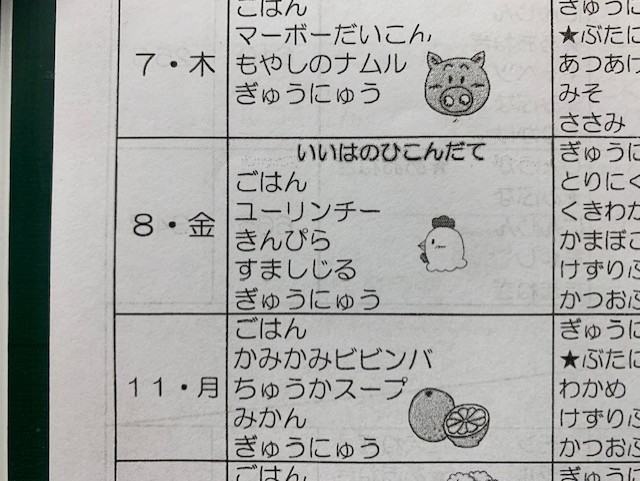 ごはん
マーボーだいこん
7・木
もやしのナムル
ぎゅうにゅう
ぎゅうに
★ぶたに
あつあげ
みそ
ささみ
いいはのひこんだて
8・金
ごはん
ユーリンチー
きんぴら
すましじる
ぎゅうにゅう
ぎゅうに
とりにく
くきわか
かまぼこ
けずりぶ
かつおぶ
11・月
ごはん
かみかみビビンバ
ちゅうかスープ
みかん
ぎゅうにゅう
ぎゅうに
★ぶたに
わかめ
けずりぶ
かつおぶ
ごはん
ぎゅうに